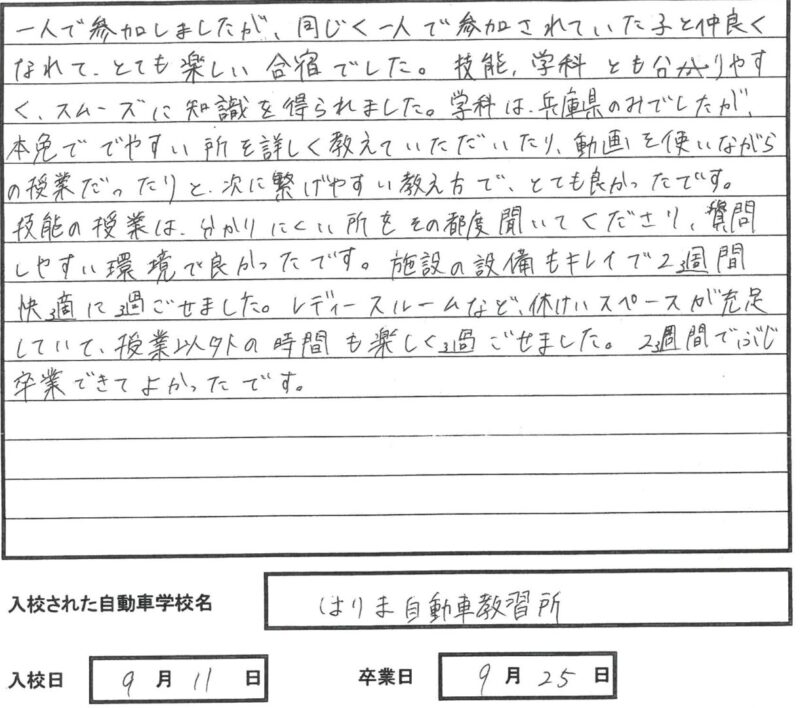 一人で参加しましたが、同じく一人で参加されていた子と仲良く
なれて、とても楽しい合宿でした。技能、学科とも分かりやす
く、スムーズに知識を得られました。学科は、兵庫県のみでしたが、
本免ででやすい所を詳しく教えていただいたり、動画を使いながら
の授業だったりと、次に繋げやすい教え方で、とても良かったです。
技能の授業は、分かりにくい所をその都度聞いてくださり、質問
しやすい環境で良かったです。施設の設備もキレイで2週間
快適に過ごせました。レディースルームなど、休けいスペースが充足
していて、授業以外の時間も楽しく過ごせました。2週間でぶじ
卒業できてよかったです。
入校された自動車学校名 はりま自動車教習所
入校日 9月11日 卒業日 9月25日